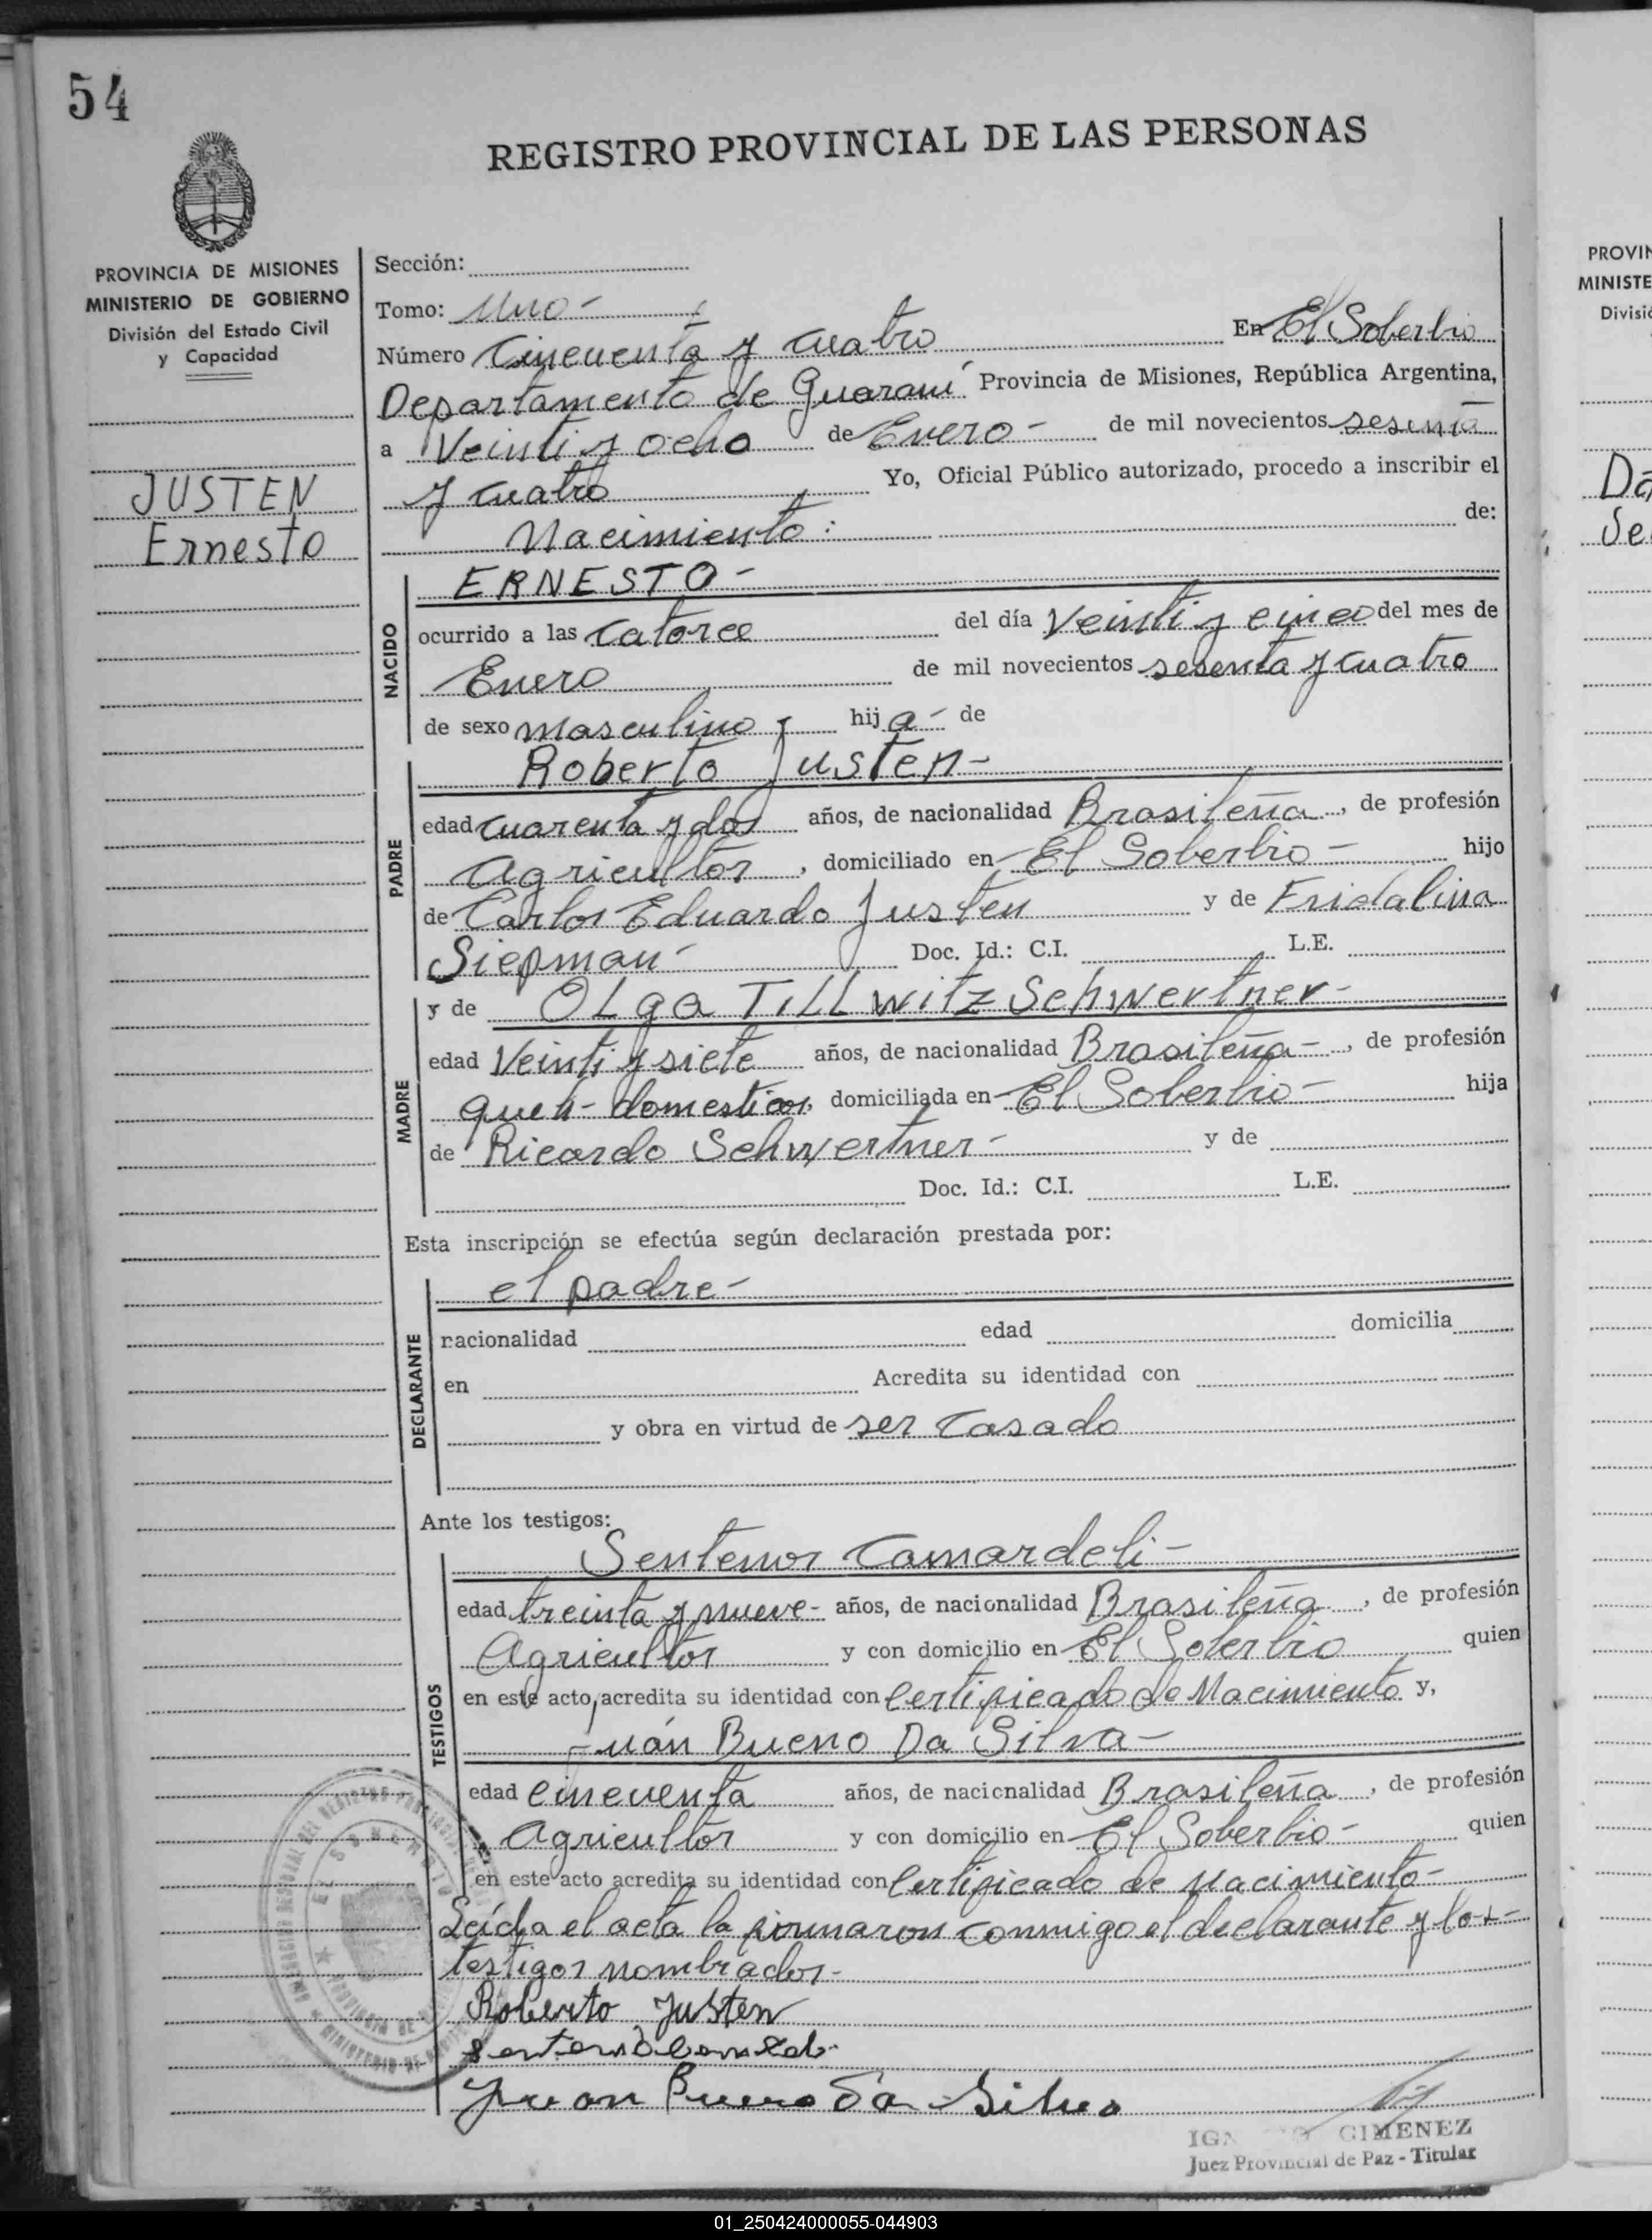 54
REGISTRO PROVINCIAL DE LAS PERSONAS
PROVINCIA DE MISIONES
MINISTERIO DE GOBIERNO
División del Estado Civil
y Capacidad
JUSTEN
Ernesto
Sección:
Tomo: Uno-
Número Cincuenta y cuatro En El Soberbio
Departamento de Guaraní Provincia de Misiones, República Argentina,
a Veinti y ocho de Enero- de mil novecientos sesenta
y cuatro Yo, Oficial Público autorizado, procedo a inscribir el
Nacimiento: de:
NACIDO
ERNESTO-
ocurrido a las catorce del día Veinti y cinco del mes de
Enero de mil novecientos sesenta y cuatro
de sexo masculino y hija- de
PADRE
Roberto Justen-
edad cuarenta y dos años, de nacionalidad Brasileña, de profesión
agricultor, domiciliado en El Soberbio- hijo
de Carlos Eduardo Justen y de Fridalina
Siepman- Doc. Id.: C.I. L.E.
MADRE
y de OLga TiLLwitz Schwertner-
edad Veinti y siete años, de nacionalidad Brasileña-, de profesión
queh- domesticos, domiciliada en El Soberbio- hija
de Ricardo Schwertner- y de
Doc. Id.: C.I. L.E.
Esta inscripción se efectúa según declaración prestada por:
DECLARANTE
el padre-
nacionalidad edad domicilia
en Acredita su identidad con
y obra en virtud de ser casado
Ante los testigos:
TESTIGOS
Sentenor Camardeli-
edad treinta y nueve- años, de nacionalidad Brasileña, de profesión
Agricultor y con domicilio en El Soberbio quien
en este acto, acredita su identidad con Certificado de Nacimiento y,
Juan Bueno Da Silva-
edad cincuenta años, de nacionalidad Brasileña, de profesión
agricultor y con domicilio en El Soberbio- quien
en este acto acredita su identidad con Certificado de Nacimiento-
Leída el acta la firmaron conmigo el declarante y los-
testigos nombrados-
Roberto Justen
Juan Bueno Da Silva
GIMENEZ
Juez Provincial de Paz - Titular
EL SOBERBIO
PROVIN
MINISTE
Divisió
Da
Se
01_250424000055-044903